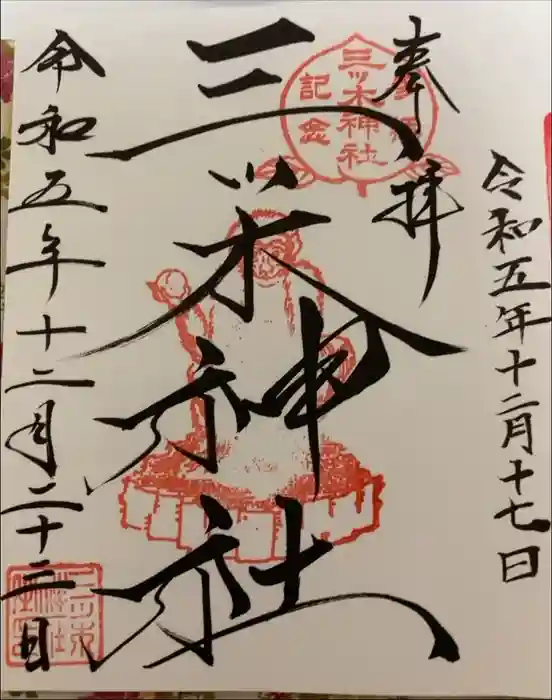 令和五年十二月十七日
奉拝
三ッ木神社
記念
三ッ木神社
令和五年十二月二十三日